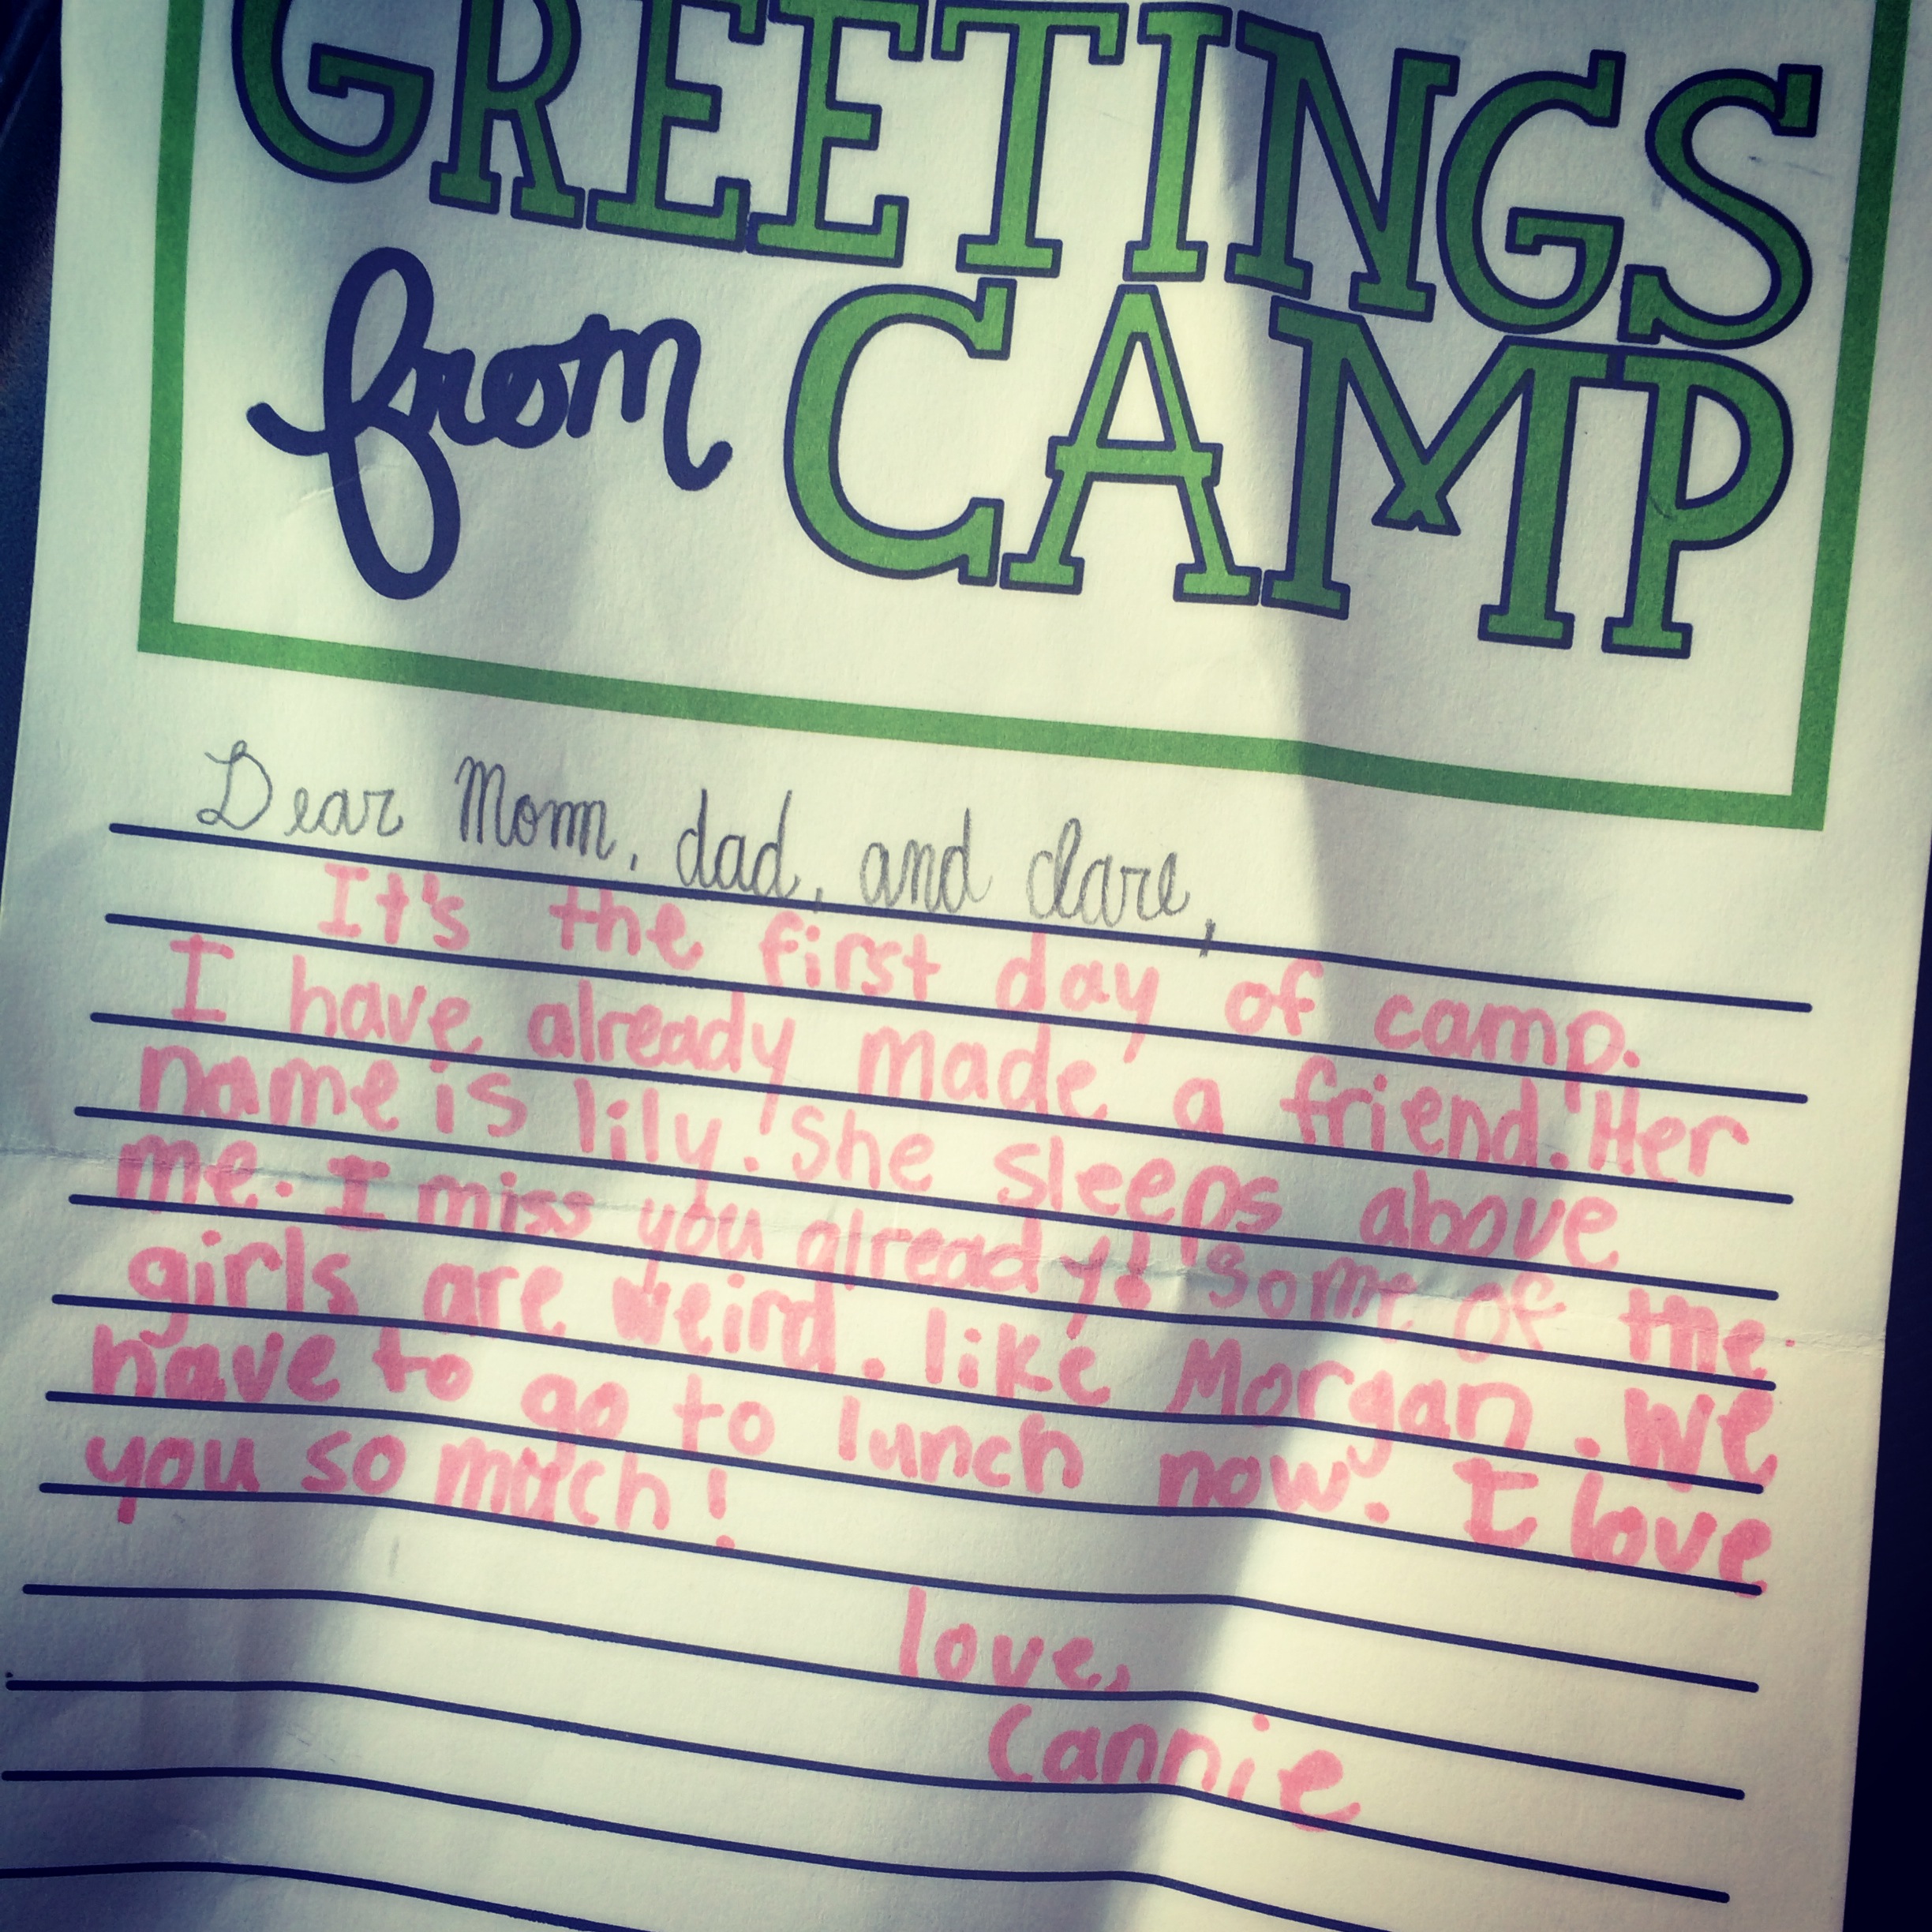 GREETINGS
from CAMP
Dear Mom, dad, and clare,
It's the first day of camp.
I have already made a friend. Her
name is lily. She sleeps above
me. I miss you already! some of the
girls are weird. like Morgan. We
have to go to lunch now. I love
you so much!
love,
Cannie